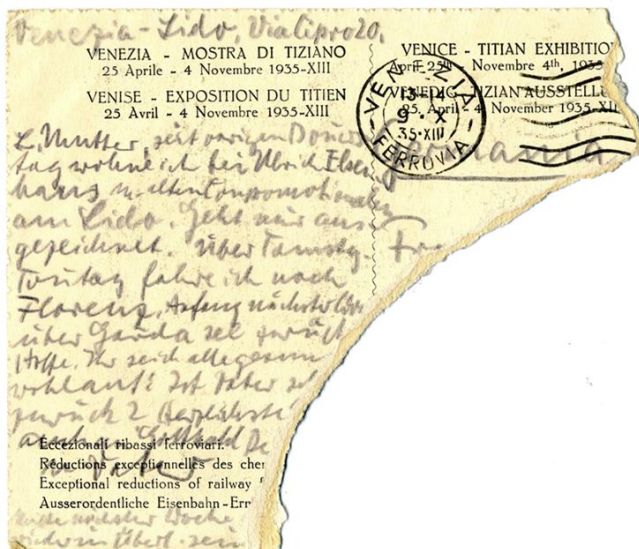 Venezia-Lido, Via Cipro 20.
VENEZIA - MOSTRA DI TIZIANO
25 Aprile - 4 Novembre 1935-XIII
VENISE - EXPOSITION DU TITIEN
25 Avril - 4 Novembre 1935-XIII
VENICE - TITIAN EXHIBITIO
April 25th - November 4th, 1935
VENEDIG - TIZIAN AUSSTELLU
25. April - 4 November 1935-XII
VENEZIA
13-14
9 · X
35·XIII
FERROVIA
Germania
L. Mutter, seit vorigen Donners
tag wohne ich bei Ulrich Elsen
hans m. alten
am Lido. Geht mir aus
gezeichnet. Über
fahre ich nach
Florenz, Anfang nächster
über Garda see zurück
Hoffe, Ihr seid alle gesun
wohlauf! Ist Vater
zurück? Herzlichste
auch
Vater
Eccezionali ribassi ferroviari.
Réductions exceptionnelles des che
Exceptional reductions of railway
Ausserordentliche Eisenbahn-Err
Ende nächster Woche
wieder in Überl. sein